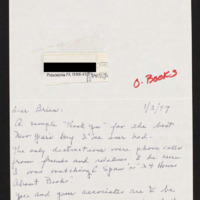 Philadelphia PA 19
O. Books
Dear Brian:
1/2/97
A simple "Thank you" for the best
New Years Day I've ever had.
The only distractions were phone calls
from friends and relatives to be sure
I was watching C Span's "24 Hours
About Books".
You and your associates are to be